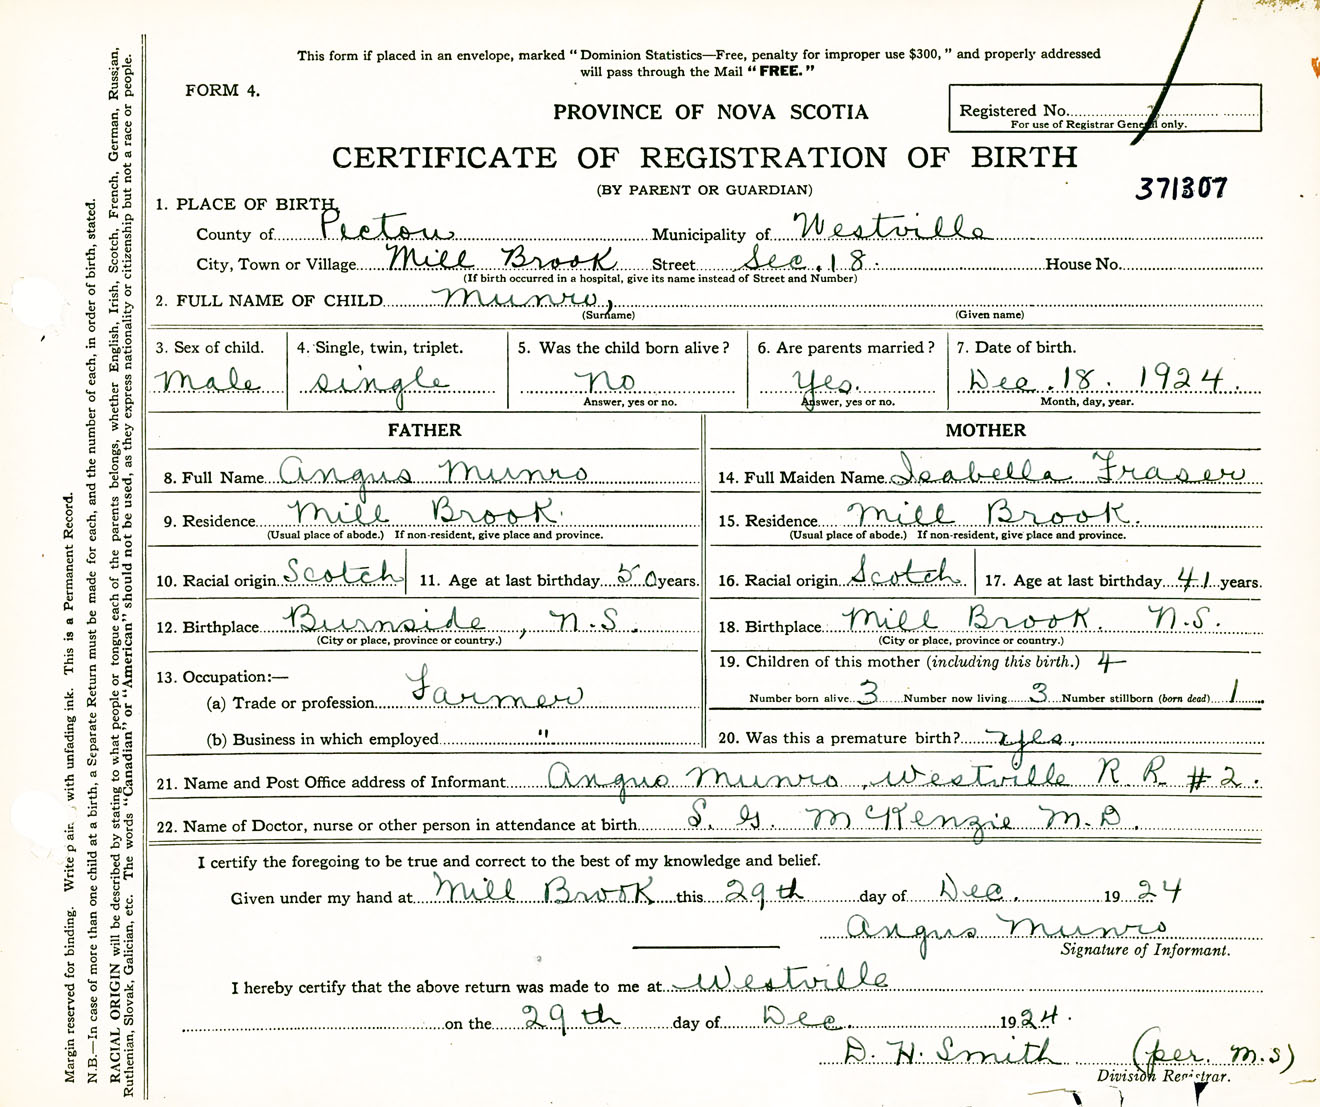 This form if placed in an envelope, marked "Dominion Statistics—Free, penalty for improper use $300," and properly addressed
will pass through the Mail "FREE."
FORM 4.
PROVINCE OF NOVA SCOTIA
Registered No.
For use of Registrar General only.
CERTIFICATE OF REGISTRATION OF BIRTH
(BY PARENT OR GUARDIAN)
371307
1. PLACE OF BIRTH
County of Pictou Municipality of Westville
City, Town or Village Mill Brook Street Sec. 18. House No.
(If birth occurred in a hospital, give its name instead of Street and Number)
2. FULL NAME OF CHILD Munro,
(Surname) (Given name)
3. Sex of child. 4. Single, twin, triplet. 5. Was the child born alive? 6. Are parents married? 7. Date of birth.
Male single no Yes. Dec. 18. 1924.
Answer, yes or no. Answer, yes or no. Month, day, year.
FATHER MOTHER
8. Full Name Angus Munro 14. Full Maiden Name Isabella Fraser
9. Residence Mill Brook. 15. Residence Mill Brook.
(Usual place of abode.) If non-resident, give place and province. (Usual place of abode.) If non-resident, give place and province.
10. Racial origin Scotch 11. Age at last birthday 50 years. 16. Racial origin Scotch 17. Age at last birthday 41 years.
12. Birthplace Burnside, N.S. 18. Birthplace Mill Brook. N.S.
(City or place, province or country.) (City or place, province or country.)
13. Occupation:— 19. Children of this mother (including this birth.) 4
(a) Trade or profession Farmer Number born alive 3 Number now living 3 Number stillborn (born dead) 1
(b) Business in which employed " 20. Was this a premature birth? yes.
21. Name and Post Office address of Informant Angus Munro, Westville R. R. #2.
22. Name of Doctor, nurse or other person in attendance at birth S. G. McKenzie M.D.
I certify the foregoing to be true and correct to the best of my knowledge and belief.
Given under my hand at Mill Brook this 29th day of Dec. 1924
Angus Munro
Signature of Informant.
I hereby certify that the above return was made to me at Westville
on the 29th day of Dec. 1924.
D. H. Smith (per. M.S)
Division Registrar.
Margin reserved for binding. Write with unfading ink. This is a Permanent Record.
N.B.—In case of more than one child at a birth, a Separate Return must be made for each, and the number of each, in order of birth, stated.
RACIAL ORIGIN will be described by stating to what people or tongue each of the parents belongs, whether English, Irish, Scotch, French, German, Russian,
Ruthenian, Slovak, Galician, etc. The words "Canadian" or "American" should not be used, as they express nationality or citizenship but not a race or people.